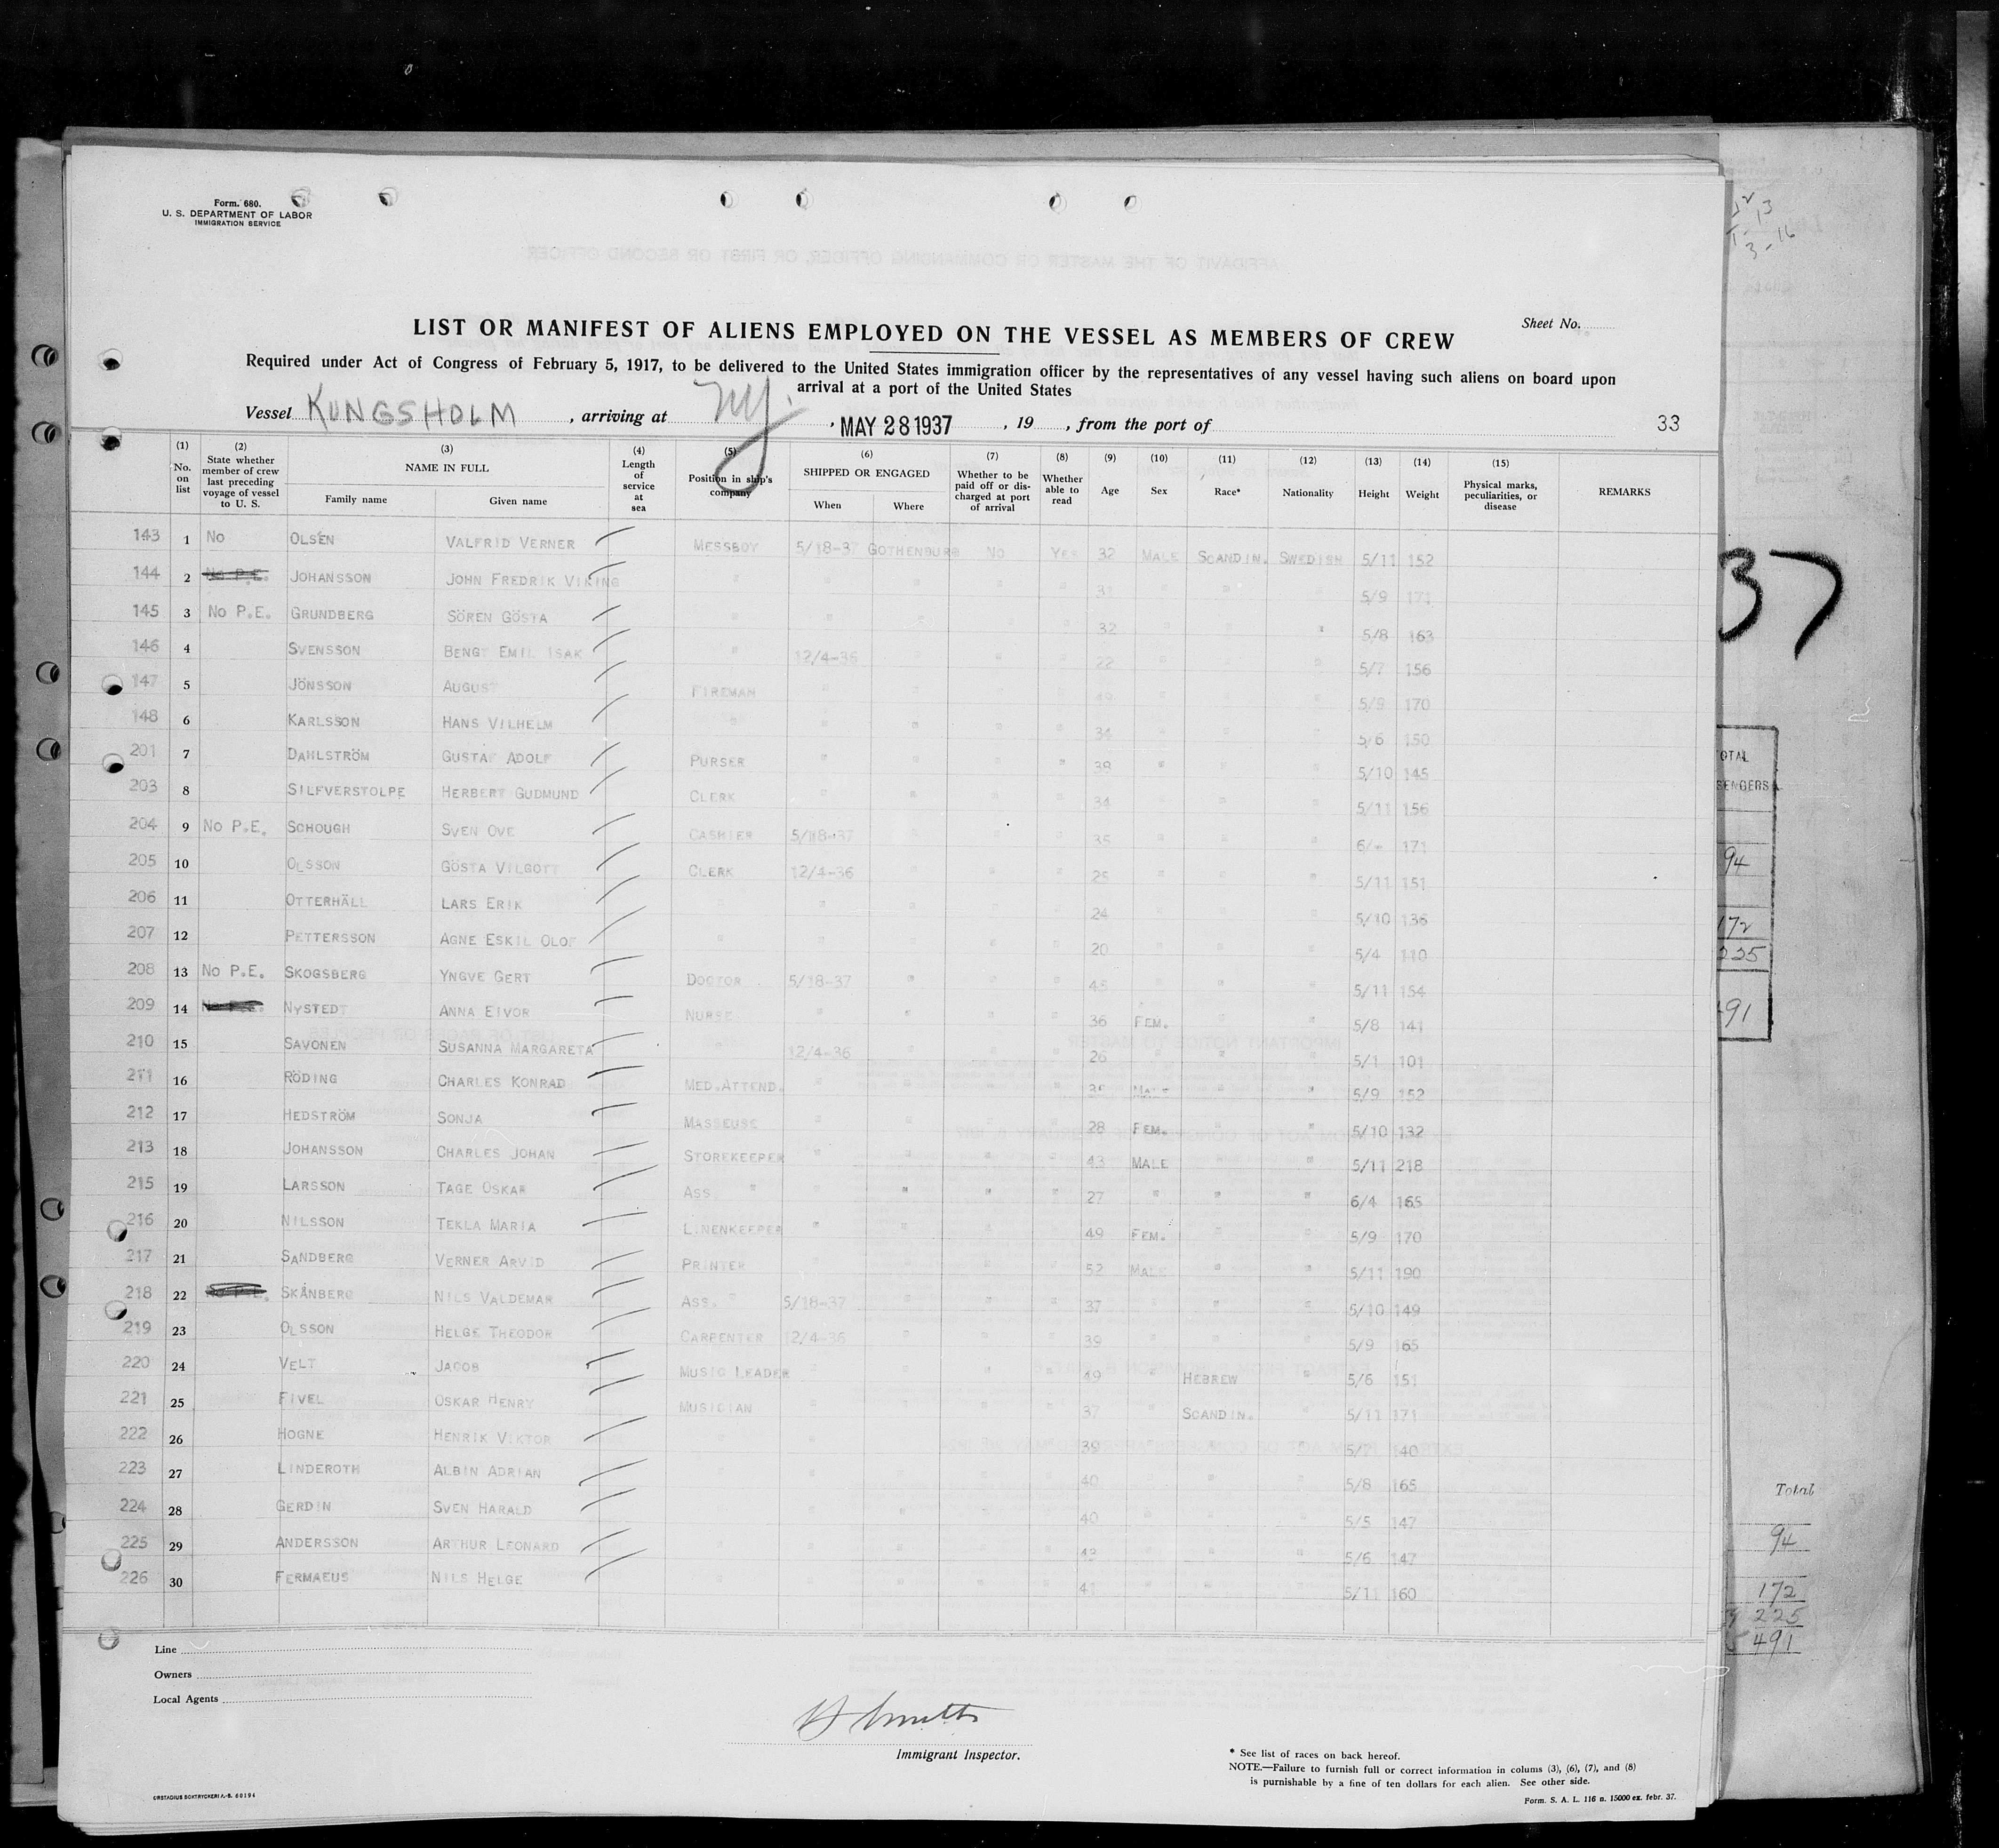 Form. 680.
U. S. DEPARTMENT OF LABOR
IMMIGRATION SERVICE
LIST OR MANIFEST OF ALIENS EMPLOYED ON THE VESSEL AS MEMBERS OF CREW
Sheet No.
Required under Act of Congress of February 5, 1917, to be delivered to the United States immigration officer by the representatives of any vessel having such aliens on board upon
arrival at a port of the United States
Vessel KUNGSHOLM , arriving at NY. , MAY 28 1937 , 19 , from the port of 33
(1) No. on list (2) State whether member of crew last preceding voyage of vessel to U. S. (3) NAME IN FULL Family name Given name (4) Length of service at sea (5) Position in ship's company (6) SHIPPED OR ENGAGED When Where (7) Whether to be paid off or discharged at port of arrival (8) Whether able to read (9) Age (10) Sex (11) Race* (12) Nationality (13) Height (14) Weight (15) Physical marks, peculiarities, or disease REMARKS
143 1 No OLSEN VALFRID VERNER MESSBOY 5/18-37 GOTHENBURG NO YES 32 MALE SCANDIN. SWEDISH 5/11 152
144 2 No P.E. JOHANSSON JOHN FREDRIK VIKING " " " " " 31 " " " 5/9 171
145 3 No P.E. GRUNDBERG SÖREN GÖSTA " " " " " 32 " " " 5/8 163
146 4 SVENSSON BENGT EMIL ISAK " 12/4-36 " " " 22 " " " 5/7 156
147 5 JÖNSSON AUGUST FIREMAN " " " " 49 " " " 5/9 170
148 6 KARLSSON HANS VILHELM " " " " " 34 " " " 5/6 150
201 7 DAHLSTRÖM GUSTAF ADOLF PURSER " " " " 39 " " " 5/10 145
203 8 SILFVERSTOLPE HERBERT GUDMUND CLERK " " " " 34 " " " 5/11 156
204 9 No P.E. SCHOUGH SVEN OVE CASHIER 5/18-37 " " " 35 " " " 6/- 171
205 10 OLSSON GÖSTA VILGOTT CLERK 12/4-36 " " " 25 " " " 5/11 151
206 11 OTTERHÄLL LARS ERIK " " " " " 24 " " " 5/10 136
207 12 PETTERSSON AGNE ESKIL OLOF " " " " " 20 " " " 5/4 110
208 13 No P.E. SKOGSBERG YNGVE GERT DOCTOR 5/18-37 " " " 45 " " " 5/11 154
209 14 No P.E. NYSTEDT ANNA EIVOR NURSE " " " " 36 FEM. " " 5/8 141
210 15 SAVONEN SUSANNA MARGARETA " 12/4-36 " " " 26 " " " 5/1 101
211 16 RÖDING CHARLES KONRAD MED.ATTEND. " " " " 35 MALE " " 5/9 152
212 17 HEDSTRÖM SONJA MASSEUSE " " " " 28 FEM. " " 5/10 132
213 18 JOHANSSON CHARLES JOHAN STOREKEEPER " " " " 43 MALE " " 5/11 218
215 19 LARSSON TAGE OSKAR ASS " " " " " 27 " " " 6/4 165
216 20 NILSSON TEKLA MARIA LINENKEEPER " " " " 49 FEM. " " 5/9 170
217 21 SANDBERG VERNER ARVID PRINTER " " " " 52 MALE " " 5/11 190
218 22 No P.E. SKÅNBERG NILS VALDEMAR ASS. " 5/18-37 " " " 37 " " " 5/10 149
219 23 OLSSON HELGE THEODOR CARPENTER 12/4-36 " " " 39 " " " 5/9 165
220 24 VELT JACOB MUSIC LEADER " " " " 49 " HEBREW " 5/6 151
221 25 FIVEL OSKAR HENRY MUSICIAN " " " " 37 " SCANDIN. " 5/11 171
222 26 HOGNE HENRIK VIKTOR " " " " " 39 " " " 5/7 140
223 27 LINDEROTH ALBIN ADRIAN " " " " " 40 " " " 5/8 165
224 28 GERDIN SVEN HARALD " " " " " 40 " " " 5/5 147
225 29 ANDERSSON ARTHUR LEONARD " " " " " 43 " " " 5/6 147
226 30 FERMAEUS NILS HELGE " " " " " 41 " " " 5/11 160
Line
Owners
Local Agents
Immigrant Inspector.
* See list of races on back hereof.
NOTE.—Failure to furnish full or correct information in colums (3), (6), (7), and (8)
is punishable by a fine of ten dollars for each alien. See other side.
Form. S. A. L. 116 n. 15000 ex. febr. 37.
37
94
172
225
491
Total
94
172
225
491